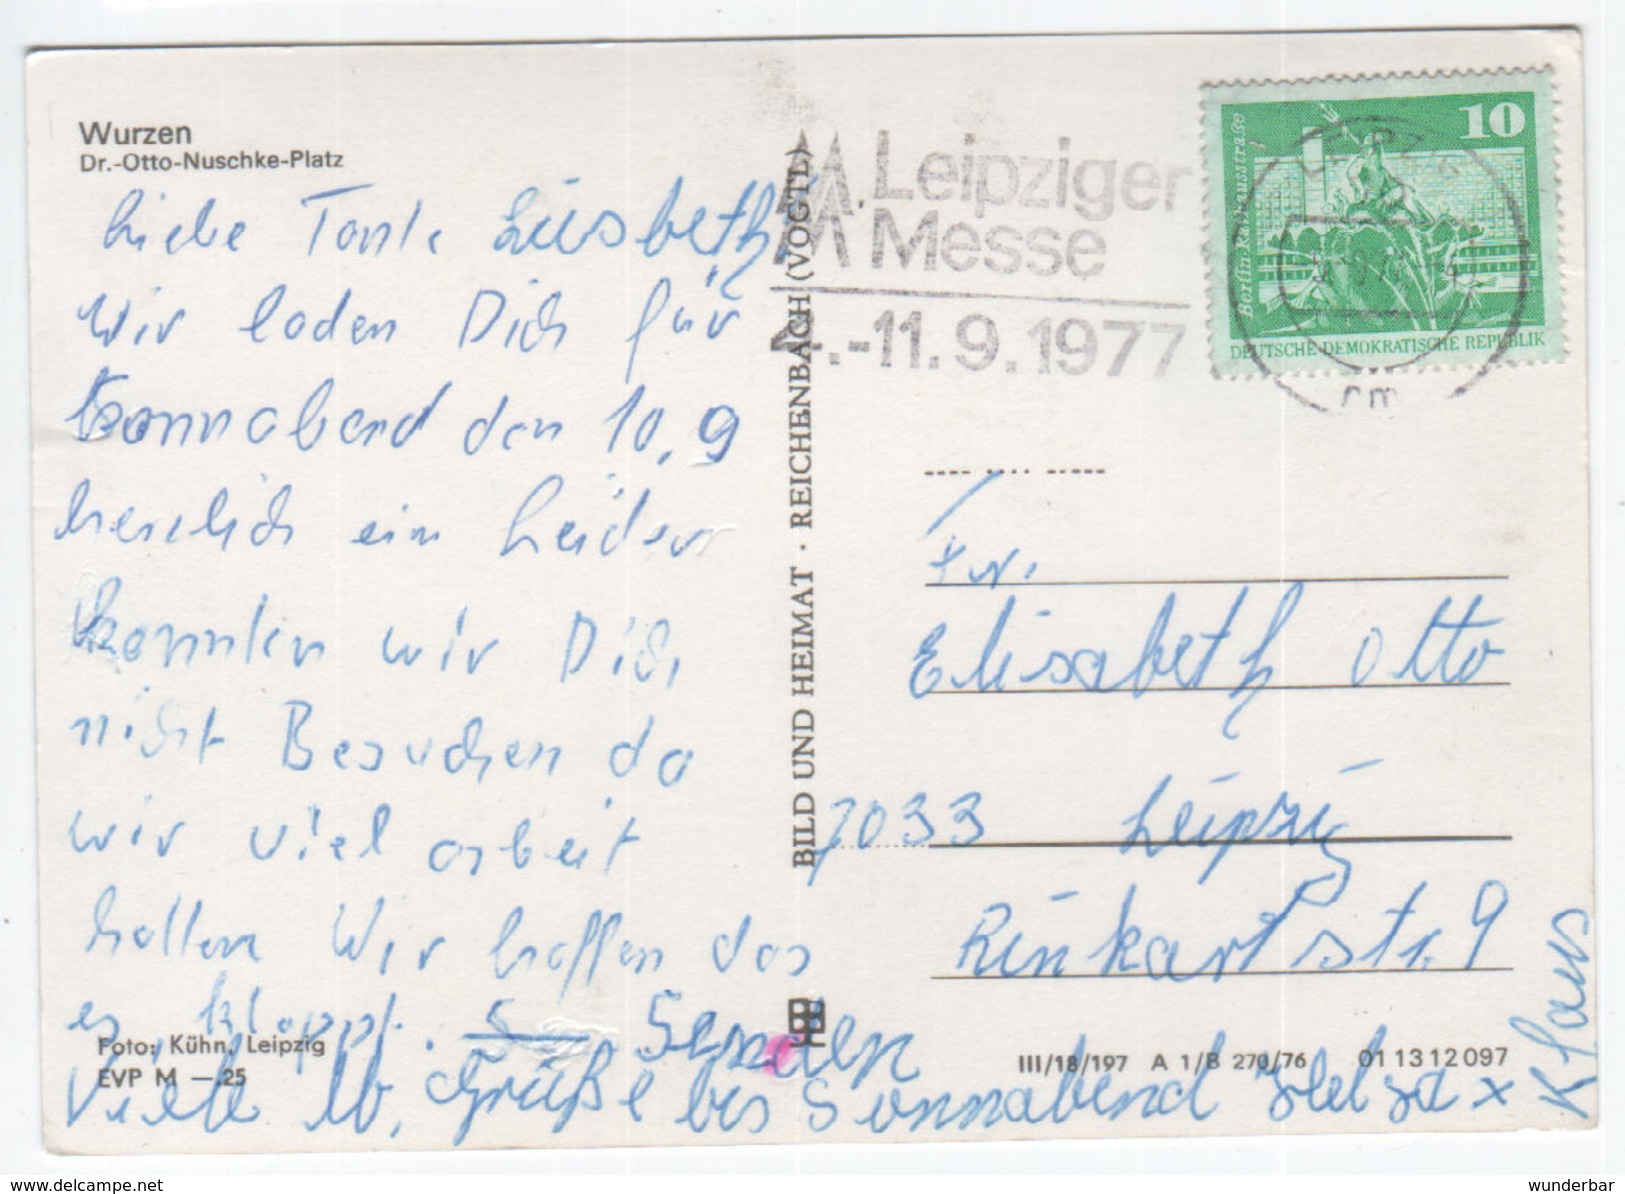 Wurzen
Dr.-Otto-Nuschke-Platz
Liebe Tante Liesbeth
Wir laden Dich für
Sonnabend den 10.9
herzlich ein Leider
konnten wir Dich
nicht Besuchen da
wir viel arbeit
hatten Wir hoffen das
es klappt. Senden
Viele lb. Grüße bis Sonnabend Helga x
Klaus
Foto: Kühn, Leipzig
EVP M —.25
BILD UND HEIMAT · REICHENBACH (VOGTL)
MM Leipziger
Messe
4.-11.9.1977
10
Berlin Rathausstraße
DEUTSCHE DEMOKRATISCHE REPUBLIK
Fr.
Elisabeth Otto
7033 Leipzig
Rinkartstr. 9
III/18/197 A 1/B 270/76 01 13 12 097
www.delcampe.net
wunderbar